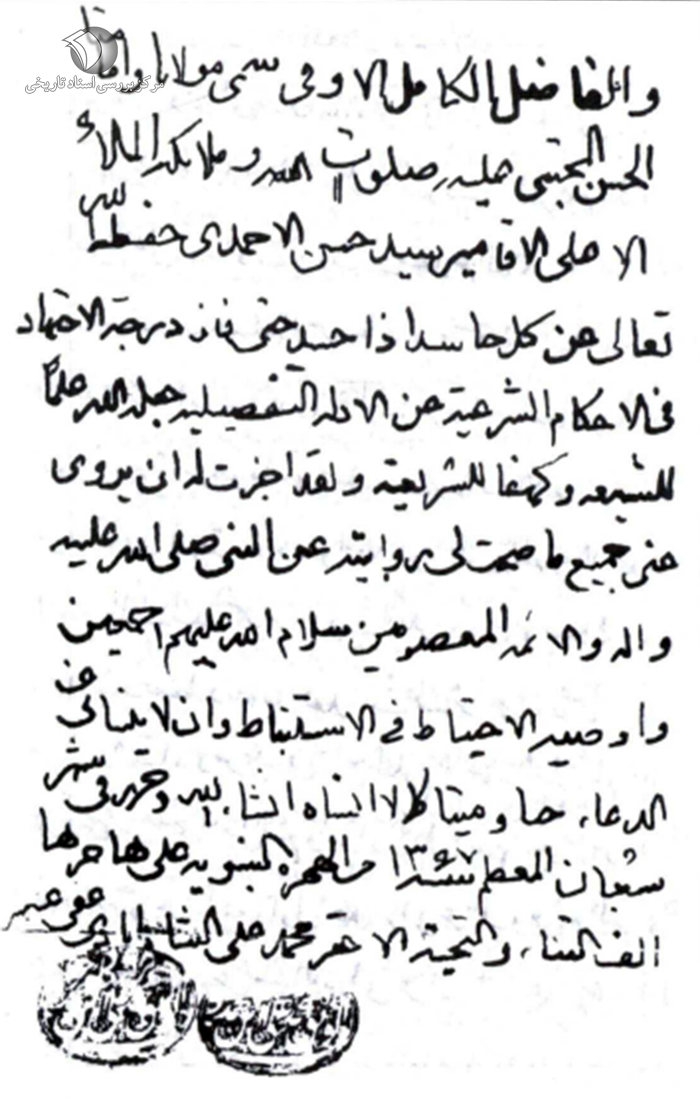 مرکز بررسی اسناد تاریخی
والفاضل الکامل الاوفی سمی مولانا وامامنا
الحسن المجتبی علیه صلوات الله وملائکة الملأ
الاعلی الاقا میر سید حسن الاحمدی حفظه الله
تعالی عن کل حاسد اذا حسد حتی فاز درجة الاجتهاد
فی الاحکام الشرعیة عن الادلة التفصیلیة جعله الله علماً
للشیعه وکهفا للشریعة ولقد اجزت له ان یروی
عنی جمیع ما صحت لی روایته عن النبی صلی الله علیه
واله والائمه المعصومین سلام الله علیهم اجمعین
واوصیه الاحتیاط فی الاستنباط وان لا ینسانی عن
الدعاء حیا ومیتا کما لا انساه انشاء الله وحرر فی شهر
شعبان المعظم سنه ۱۳۶۷ من الهجرة النبویه علی هاجرها
الف الثناء والتحیة الاحقر محمد علی الشاه ابادی عفی عنه